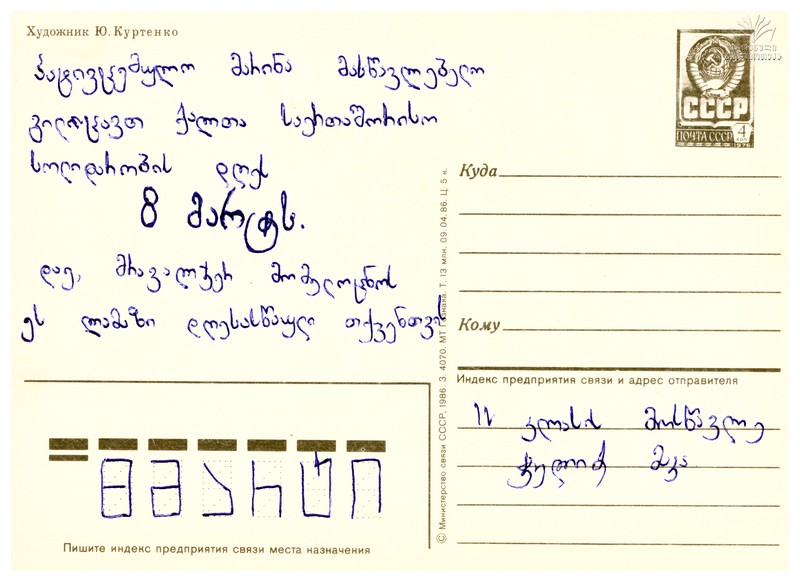 Художник Ю. Куртенко
პატივცემულო მარინა მასწავლებელო
გილოცავთ ქალთა საერთაშორისო
სოლიდარობის დღეს
8 მარტს.
დაე, მრავალჯერ მოგელოცნოს
ეს ლამაზი დღესასწაული თქვენთვის
СССР
ПОЧТА СССР
4
коп
1976
Куда
Кому
Индекс предприятия связи и адрес отправителя
IV კლასის მოსწავლე
მკა
© Министерство связи СССР, 1986. З. 4070. МТ Гознака. Т. 13 млн. 09.04.86. Ц. 5 к.
8 მარტი
Пишите индекс предприятия связи места назначения